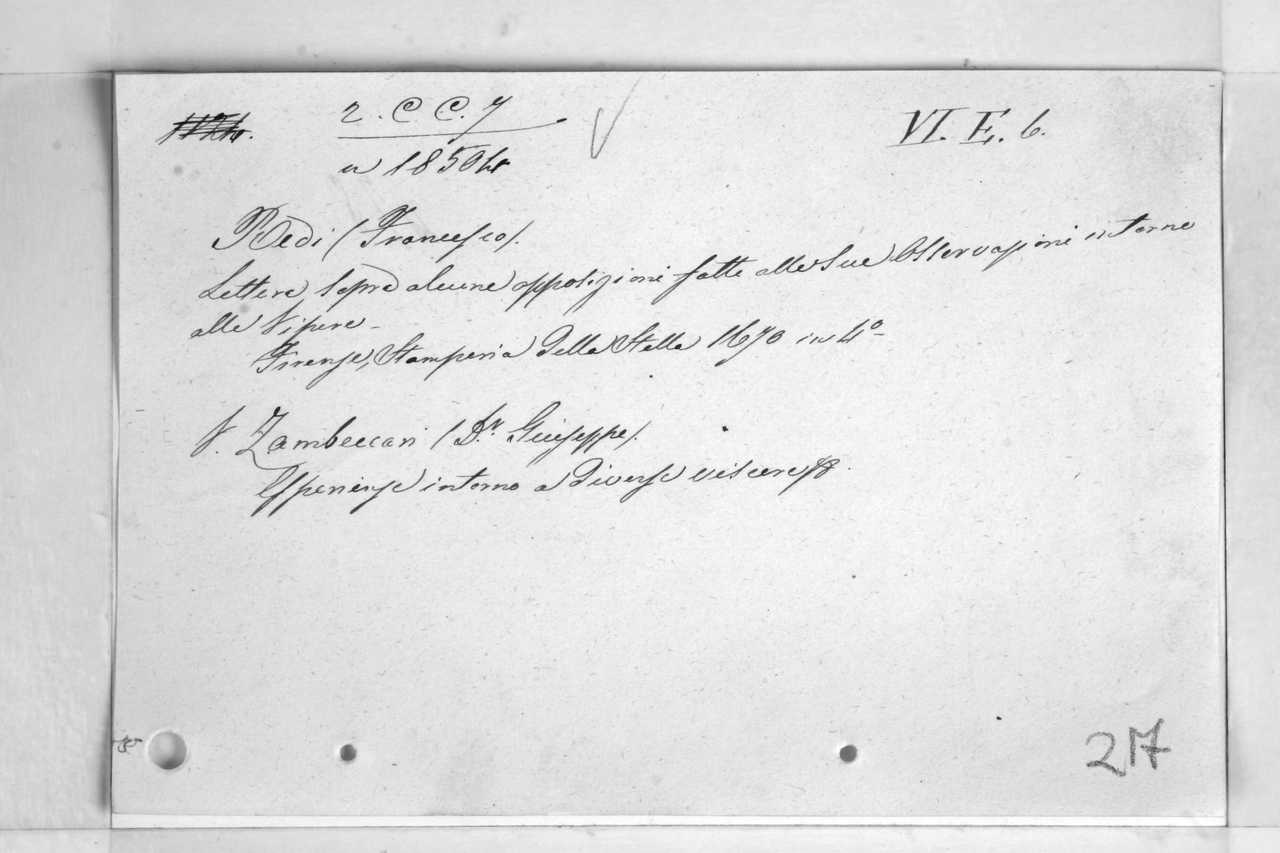 2. C C. 7
VI. E. 6.
a 18504
Redi (Francesco).
Lettera, sopra alcune opposizioni fatte alle Sue Osservazioni intorno
alle Vipere.
Firenze, Stamperia della Stella 1670 in 4º
V. Zambeccari (Dr. Giuseppe).
Esperienze intorno a diverse viscere
217